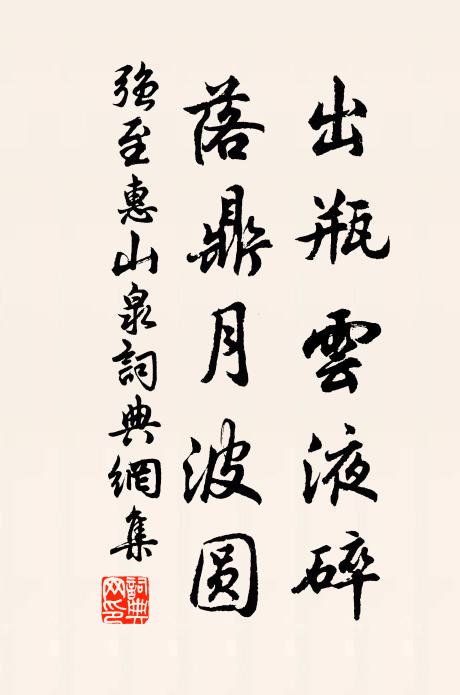 出瓶雲液碎
落鼎月波圆
强至惠山泉詞典網集
詞典网印